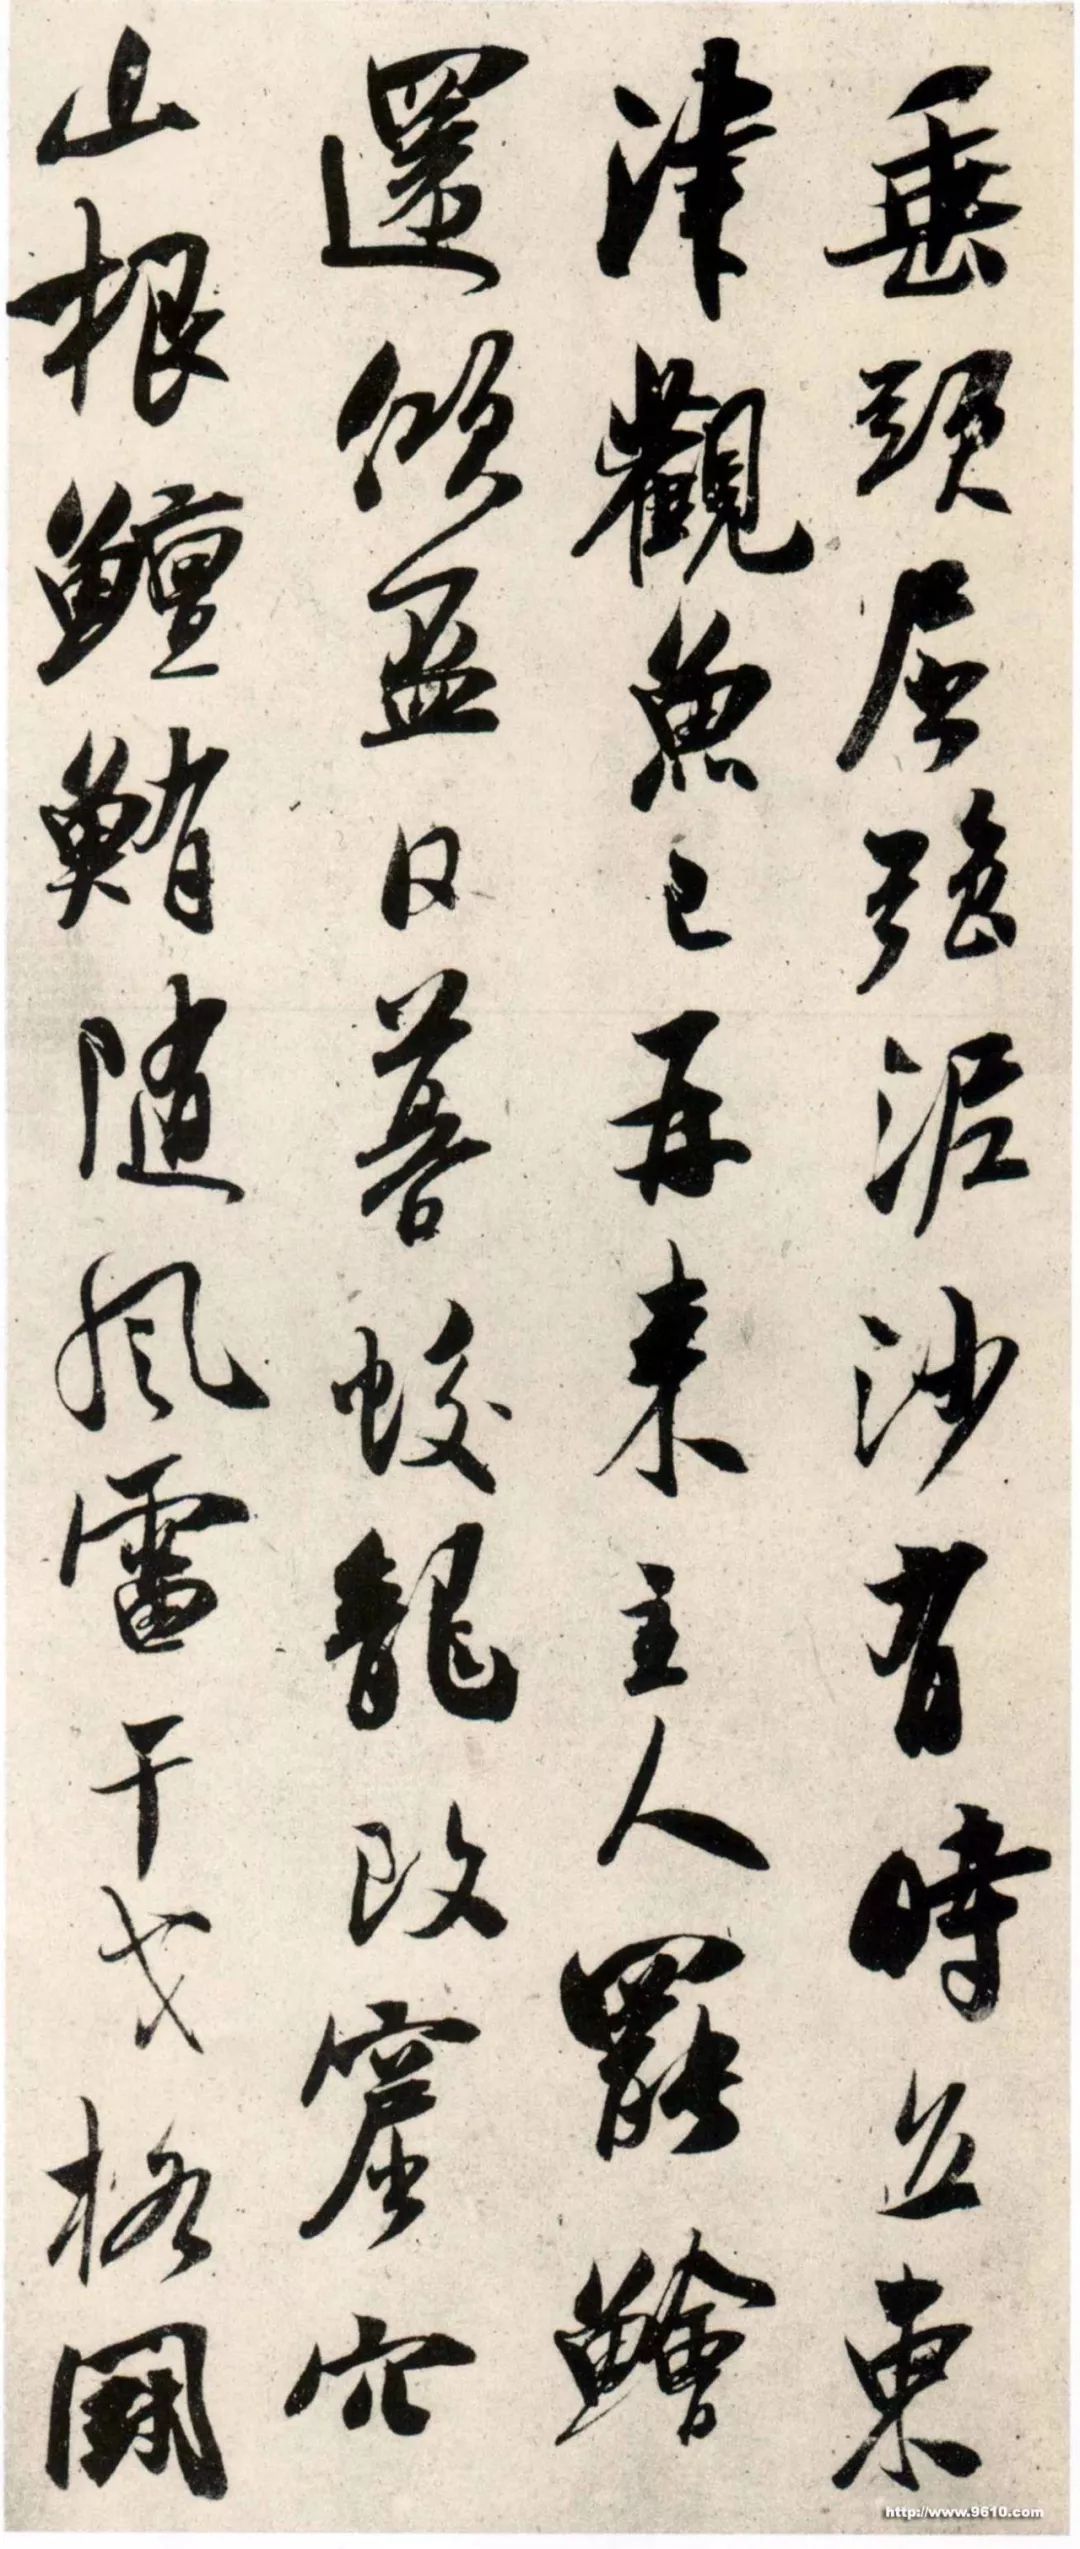 垂頭屈強泥沙有時立東
津觀魚已再来主人罷鱠
還傾盃日暮蛟龍改窟穴
山根鱣鮪随風雷干戈格鬭
http://www.9610.com